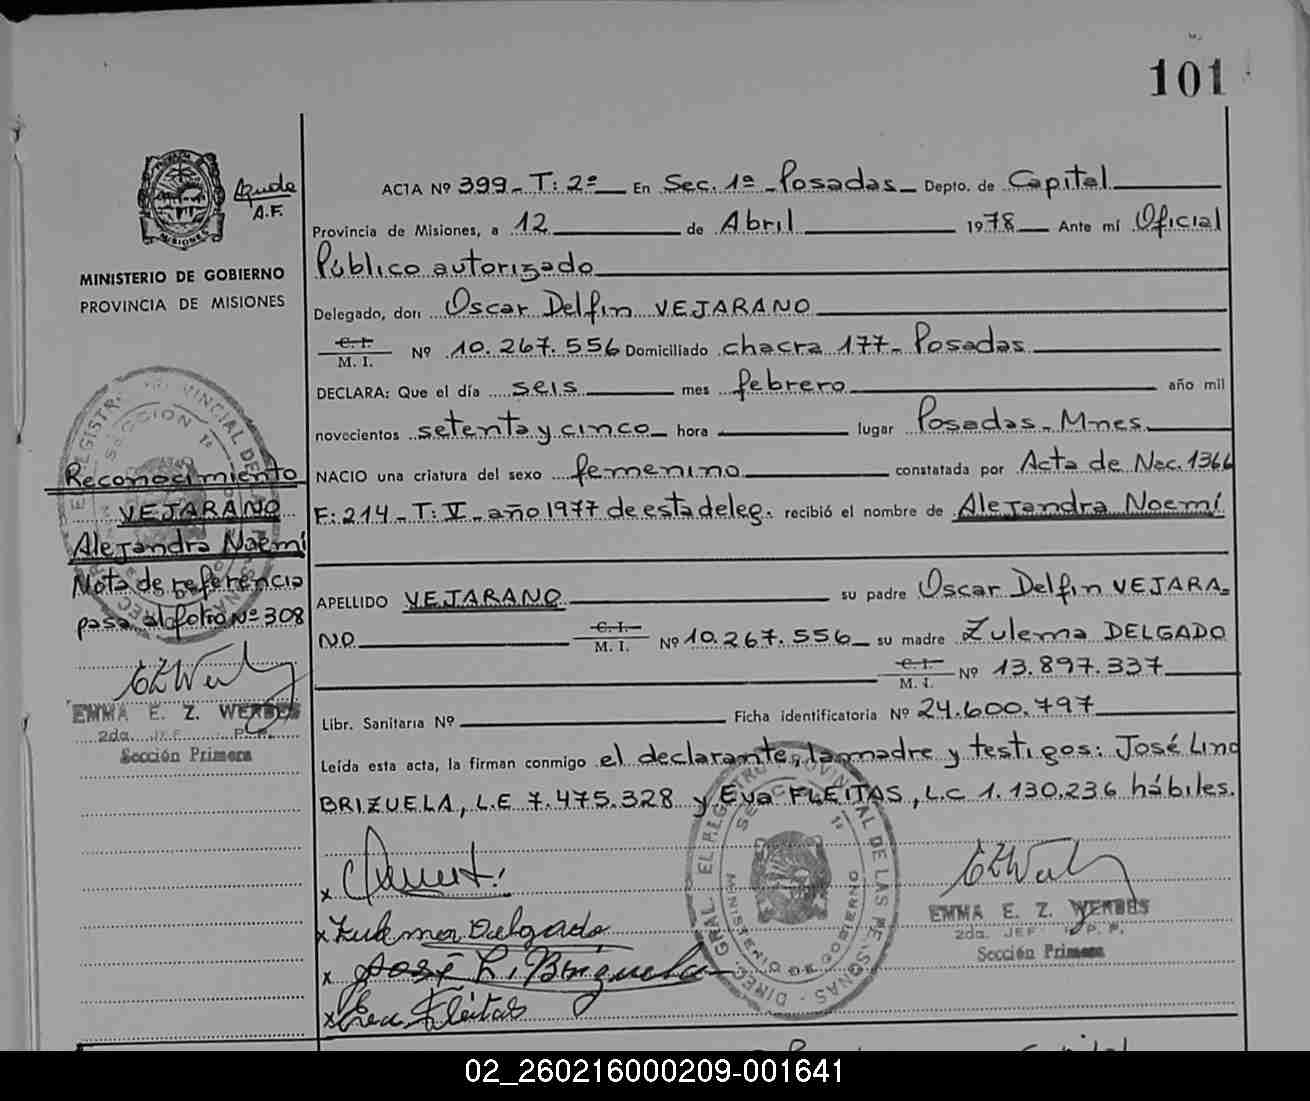 101
Ayude
A.F.
MINISTERIO DE GOBIERNO
PROVINCIA DE MISIONES
ACTA Nº 399 - T: 2º En Sec. 1ª - Posadas - Depto. de Capital
Provincia de Misiones, a 12 de Abril 1978 Ante mí Oficial
Público autorizado
Delegado, don Oscar Delfin VEJARANO
C. I.
M. I. Nº 10.267.556 Domiciliado chacra 177 - Posadas
DECLARA: Que el día seis mes febrero año mil
novecientos setenta y cinco hora lugar Posadas - Mnes.
NACIO una criatura del sexo femenino constatada por Acta de Nac. 1366
F: 214 - T: V - año 1977 de esta deleg. recibió el nombre de Alejandra Noemí
APELLIDO VEJARANO su padre Oscar Delfin VEJARA-
NO C. I. M. I. Nº 10.267.556 su madre Zulema DELGADO
C. I. M. I. Nº 13.897.337
Libr. Sanitaria Nº Ficha identificatoria Nº 24.600.797
Leída esta acta, la firman conmigo el declarante, la madre y testigos: José Lino
BRIZUELA, L.E 7.475.328 y Eva FLEITAS, L.C 1.130.236 hábiles.
Reconocimiento
VEJARANO
Alejandra Noemí
Nota de referencia
pasa al folio Nº 308
EMMA E. Z. WERBES
2da. JEF P.P.
Sección Primera
x
x Zulema Delgado
x José L. Brizuela
x Eva Fleitas
DIREC. GRAL. EL REGISTRO PROVINCIAL DE LAS PERSONAS
SECCION 1ª
MINISTERIO DE GOBIERNO
EMMA E. Z. WERBES
2da. JEF P.P.
Sección Primera
02_260216000209-001641